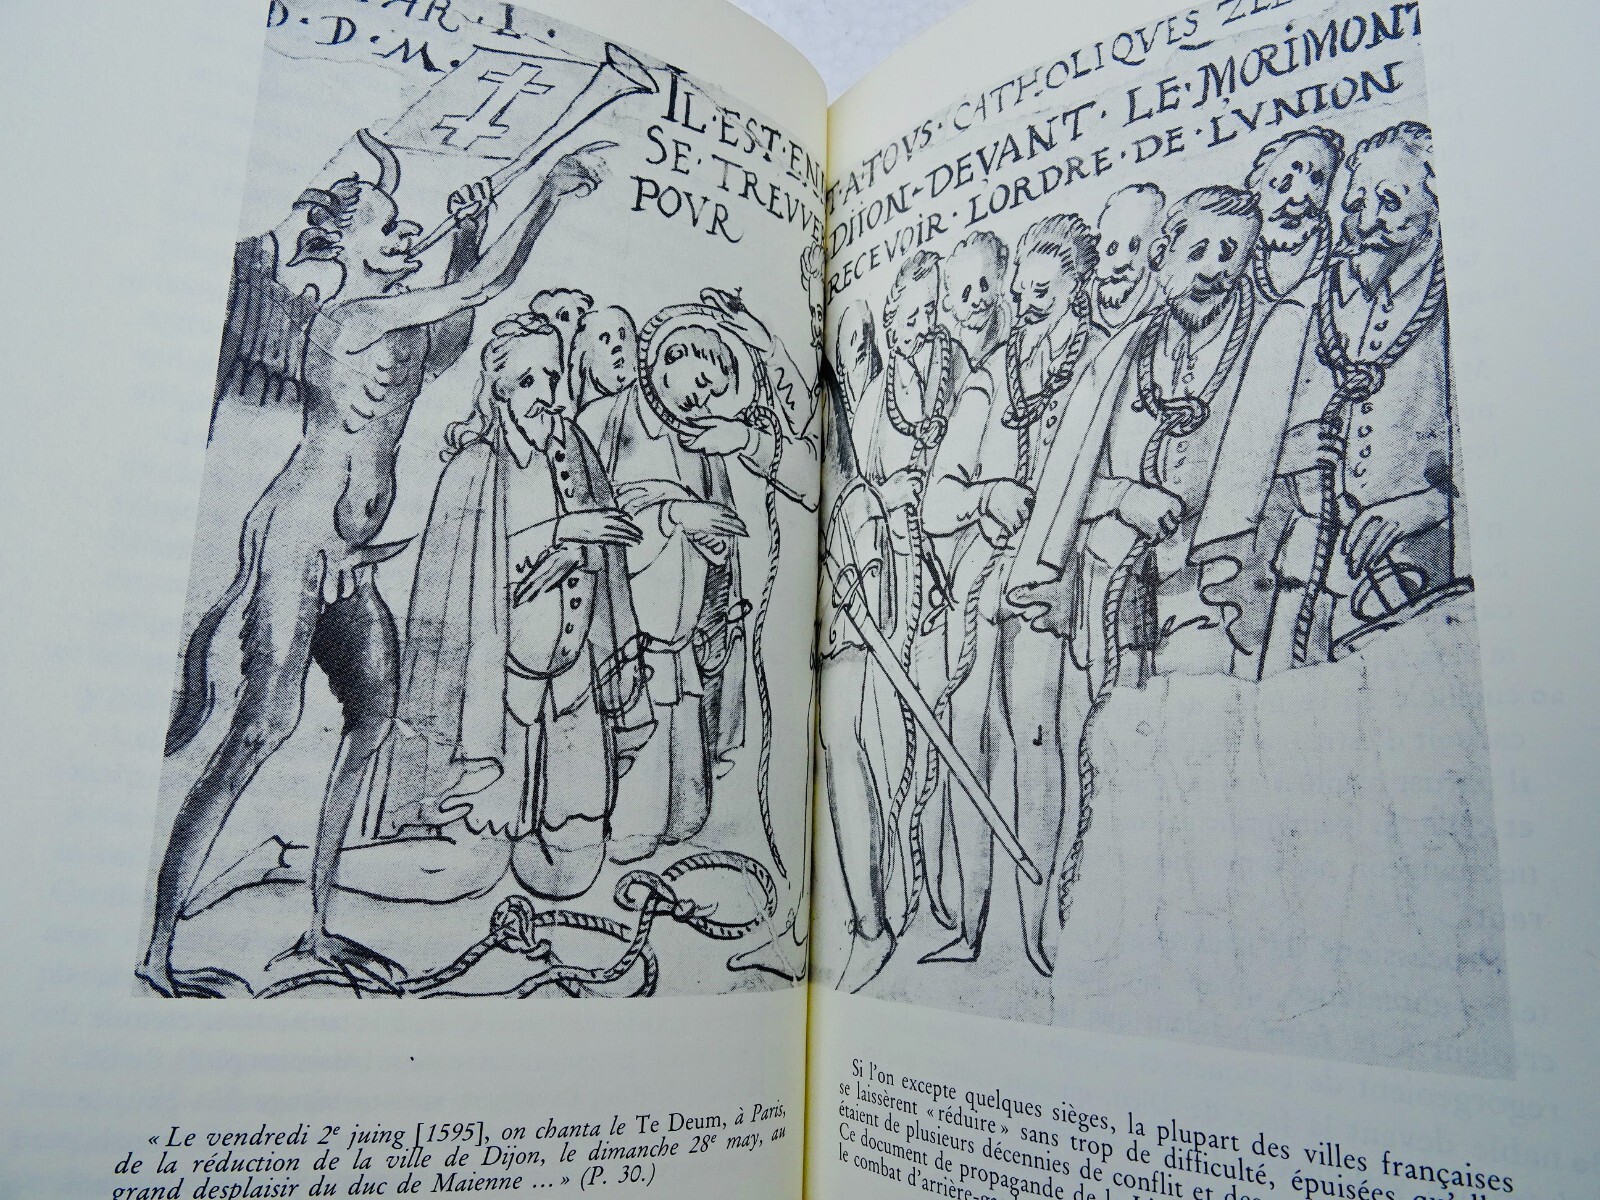 PAR · I ·
D · D · M ·
IL · EST · EN
SE · TREVVE
POVR
T · A · TOVS · CATHOLIQVES ZEL
DIION · DEVANT · LE · MORIMONT
RECEVOIR · LORDRE · DE · L'VNION
« Le vendredi 2e juing [1595], on chanta le Te Deum, à Paris,
de la réduction de la ville de Dijon, le dimanche 28e may, au
grand desplaisir du duc de Maienne ... » (P. 30.)
Si l'on excepte quelques sièges, la plupart des villes françaises
se laissèrent « réduire » sans trop de difficulté, épuisées qu'elles
étaient de plusieurs décennies de conflit et des
Ce document de propagande de la
le combat d'arrière-ga